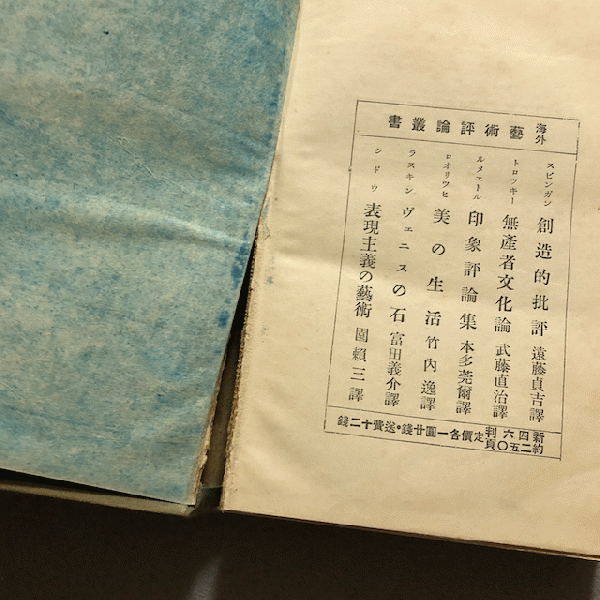 海外藝術評論叢書
スピンガン 創造的批評 遠藤貞吉譯
トロツキー 無產者文化論 武藤直治譯
ルメエトル 印象評論集 本多莞爾譯
ロオリツヒ 美の生活 竹內逸譯
ラスキン ヴェニスの石 富田義介譯
シドウ 表現主義の藝術 園賴三譯
四六判新約二五〇頁定價各一圓廿錢・送費十二錢